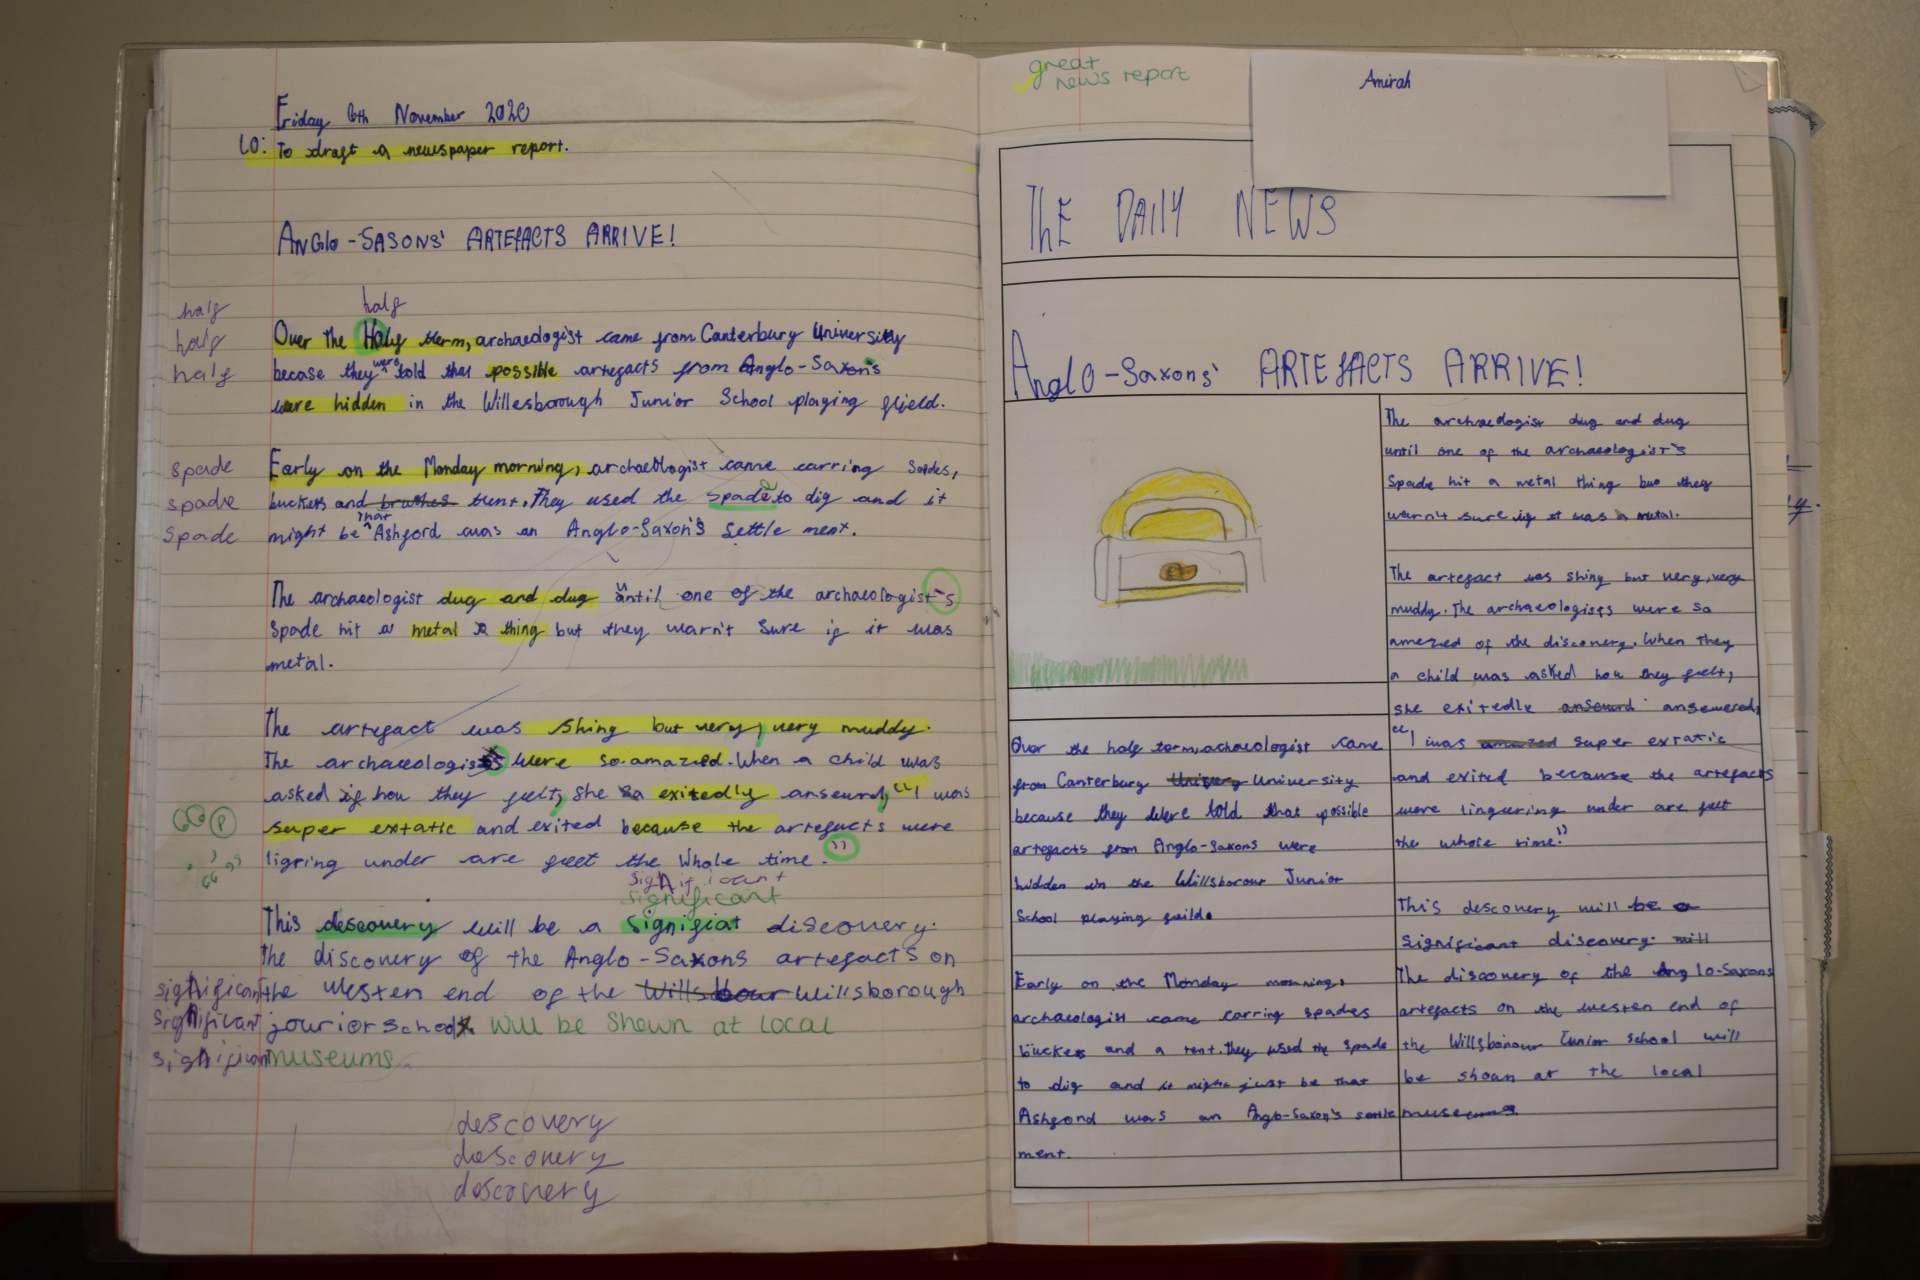 Friday 6th November 2020
LO: To draft a newspaper report.
ANGlo-SASONS' ARTEFACTS ARRIVE!
half
half
half
half
Over the Half term, archaeologist came from Canterbury University
becase they were told that possible artefacts from Anglo-Saxon's
were hidden in the Willesborough Junior School playing field.
spade
spade
spade
Early on the Monday morning, archaeologist came carring Sapdes,
buckets and brushes tent. They used the spade to dig and it
might be that Ashford was an Anglo-Saxon's Settle ment.
The archaeologist dug and dug until one of the archaeologist's
Spade hit a metal thing but they warn't sure if it was
metal.
The artefact was shing but very, very muddy.
The archaeologists were so amazed. When a child was
asked if how they felt, she exitedly anseurd, "I was
super extatic and exited because the artefacts were
ligring under are feet the whole time."
significant
significant
This descovery will be a signifiat discovery.
The discovery of the Anglo-Saxons artefacts on
significant the westen end of the Willsbour Willsborough
significant jouriorschool will be shown at local
significant museums.
descovery
descovery
descovery
great
news report
Amirah
ThE DAIlY NEWS
Anglo-Saxons' ARTEFACTS ARRIVE!
Over the half term, achaeologist came
from Canterbury Univery University
because they were told that possible
artefacts from Anglo-Saxons were
hidden in the Willsborour Junior
School playing feild.
Early on the Monday morning,
archaeologist came carring spades
buckets and a tent. they used the spade
to dig and it might just be that
Ashford was an Anglo-Saxon's settle
ment.
The archaeologist dug and dug
until one of the archaeologist's
Spade hit a metal thing but they
warn't sure if it was a metal.
The artefact was shing but very, very
muddy. The archaeologists were so
amezed of the discovery. When they
a child was asked how they felt,
she exitedle anseurd ansewered,
"I was amazed super extatic
and exited because the artefacts
were lingering under are feet
the whole time!"
This descovery will be a
significant discovery. will
The discovery of the Anglo-Saxons
artefacts on the westen end of
the Willsborour Junior School will
be shown at the local
museums